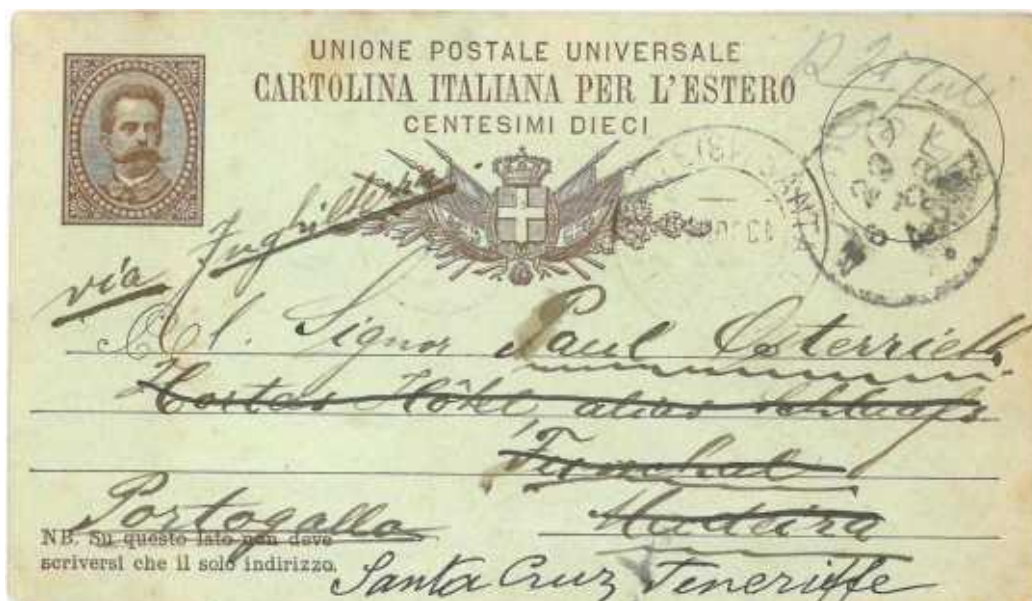 UNIONE POSTALE UNIVERSALE
CARTOLINA ITALIANA PER L'ESTERO
CENTESIMI DIECI
via Inghilterra
Al. Signor Paul Osterrieth
Hortas Hôtel, alias
Funchal
Portogallo Madeira
NB. Su questo lato non deve
scriversi che il solo indirizzo.
Santa Cruz Teneriffe